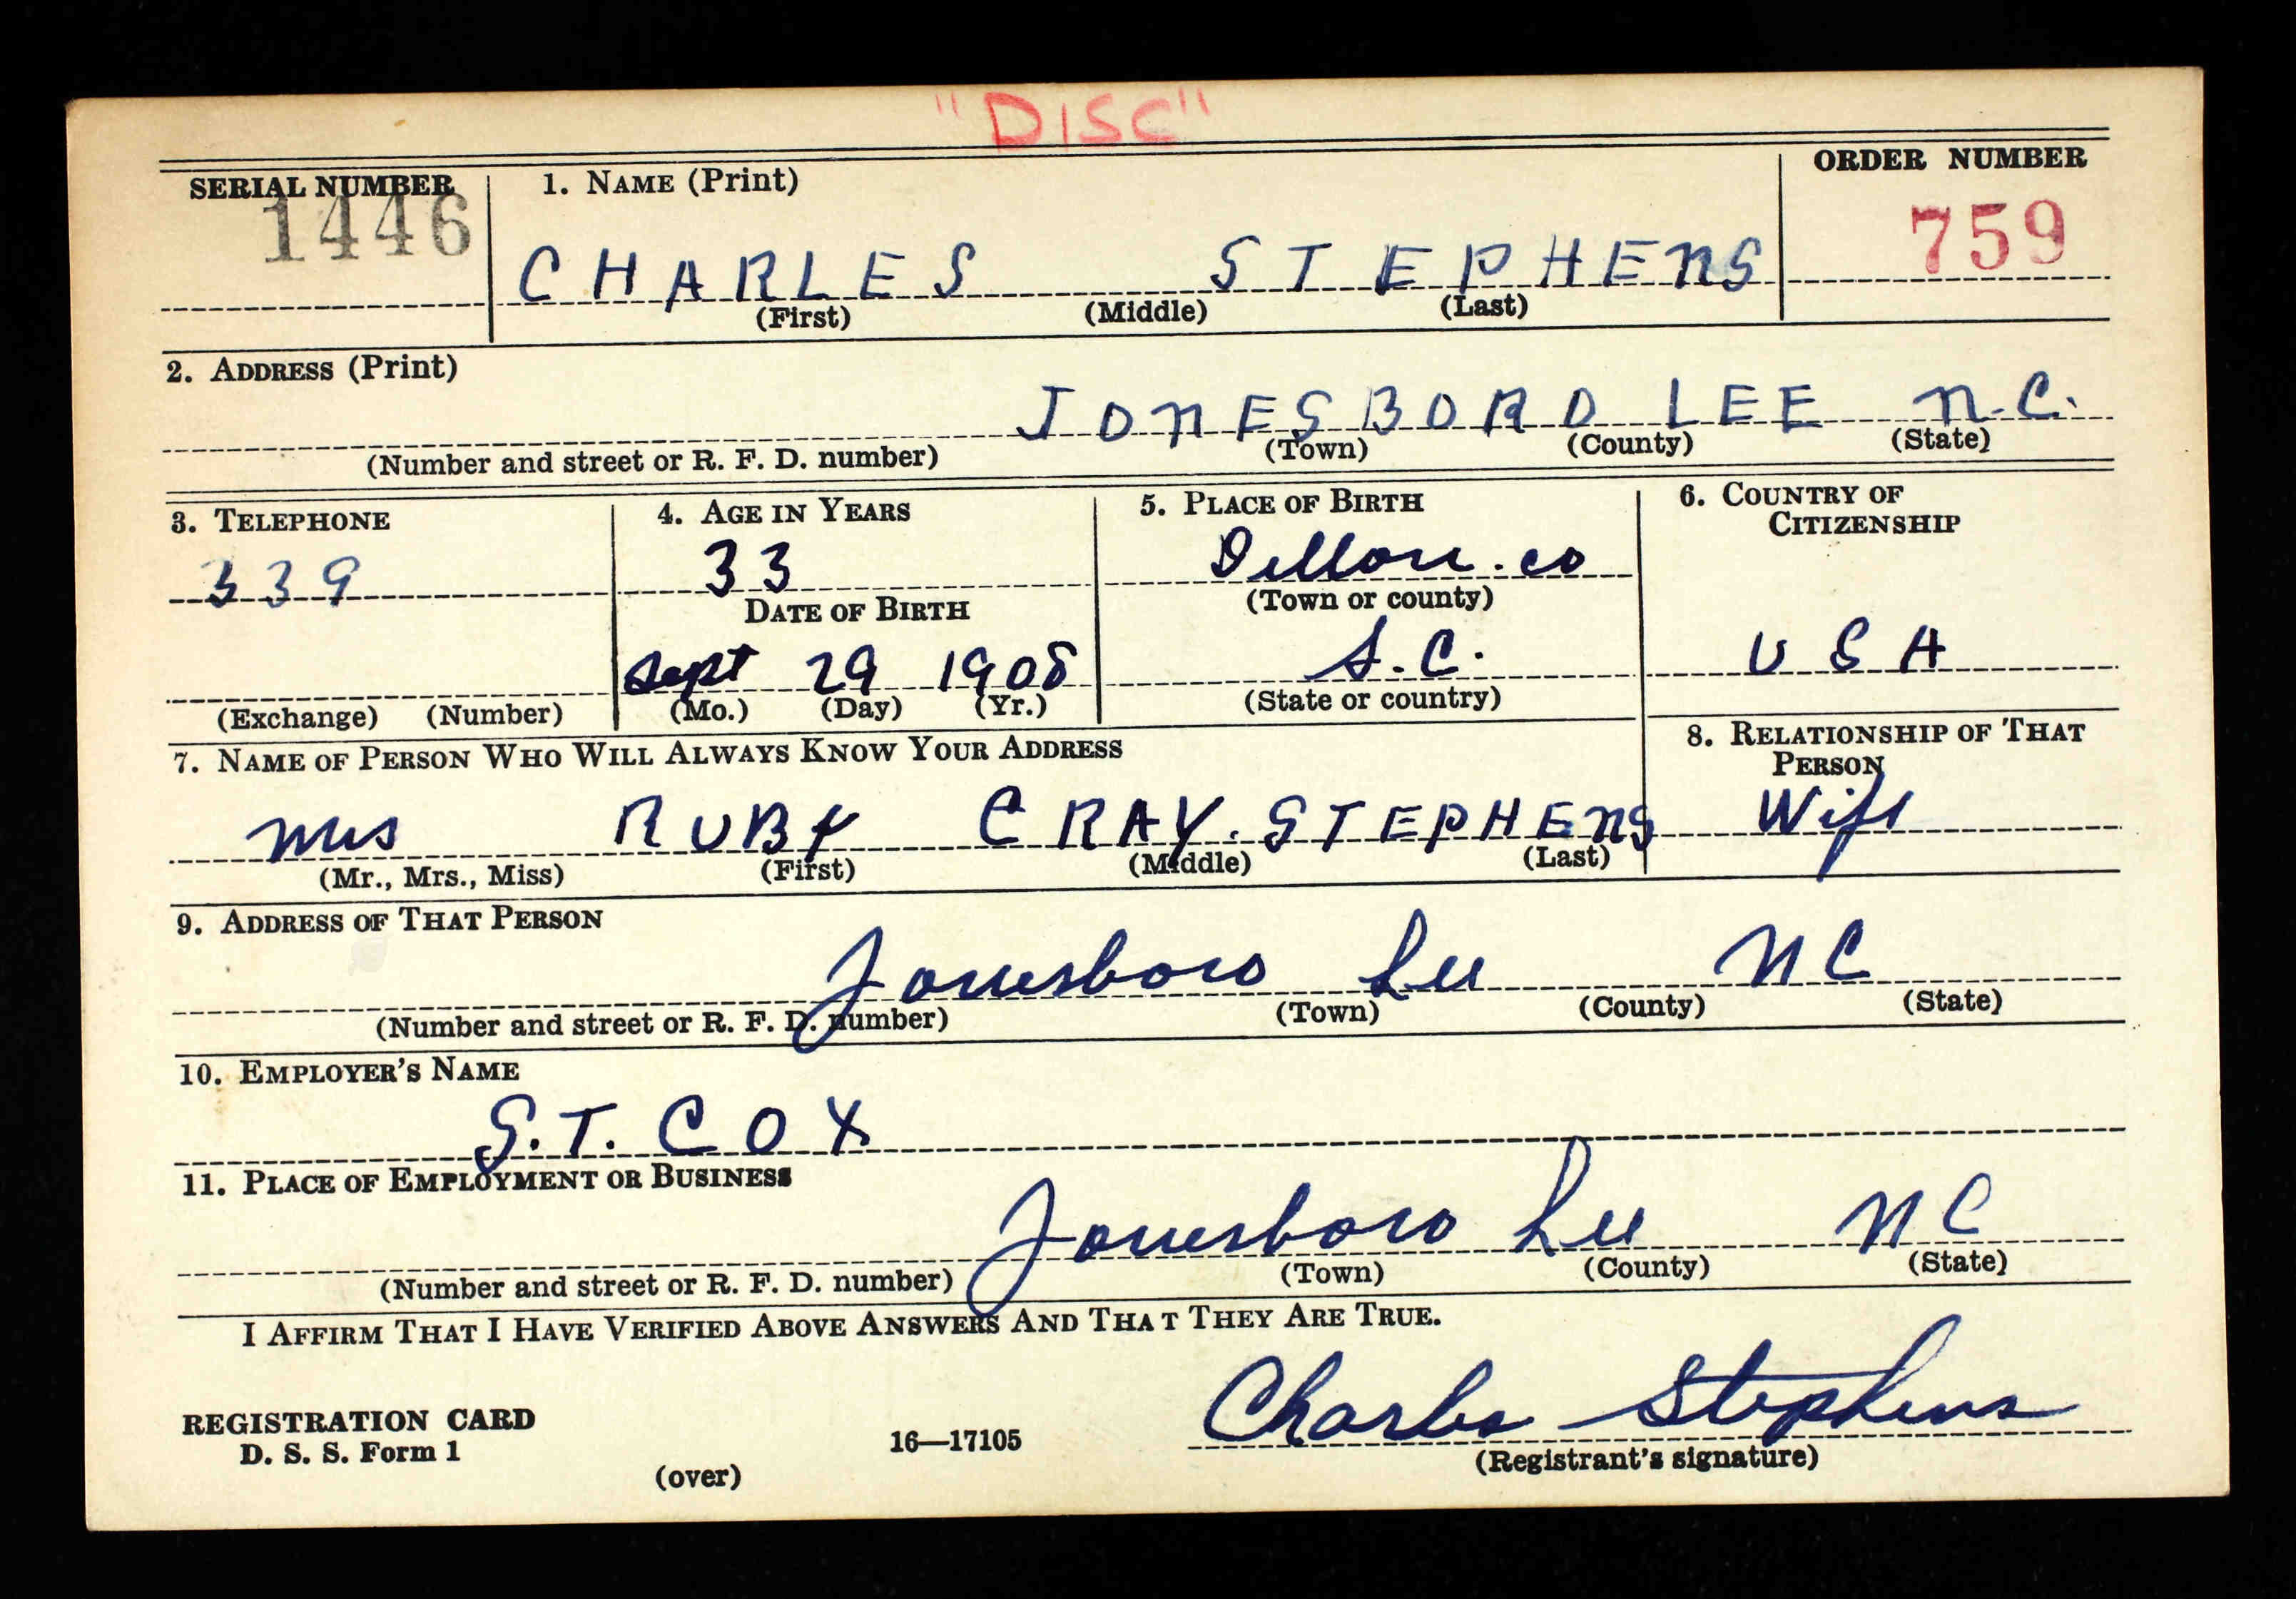 "DISC"
SERIAL NUMBER 1. NAME (Print) ORDER NUMBER
1446 759
CHARLES STEPHENS
(First) (Middle) (Last)
2. ADDRESS (Print)
JONESBORO LEE N.C.
(Number and street or R. F. D. number) (Town) (County) (State)
3. TELEPHONE 4. AGE IN YEARS 5. PLACE OF BIRTH 6. COUNTRY OF
CITIZENSHIP
339 33 Dillon.co
DATE OF BIRTH (Town or county)
Sept 29 1908 S.C. USA
(Exchange) (Number) (Mo.) (Day) (Yr.) (State or country)
7. NAME OF PERSON WHO WILL ALWAYS KNOW YOUR ADDRESS 8. RELATIONSHIP OF THAT
PERSON
Mrs RUBY CRAY. STEPHENS Wife
(Mr., Mrs., Miss) (First) (Middle) (Last)
9. ADDRESS OF THAT PERSON
Jonesboro Lee NC
(Number and street or R. F. D. number) (Town) (County) (State)
10. EMPLOYER'S NAME
S.T. COX
11. PLACE OF EMPLOYMENT OR BUSINESS
Jonesboro Lee NC
(Number and street or R. F. D. number) (Town) (County) (State)
I AFFIRM THAT I HAVE VERIFIED ABOVE ANSWERS AND THAT THEY ARE TRUE.
Charles Stephens
REGISTRATION CARD
D. S. S. Form 1 16—17105 (Registrant's signature)
(over)